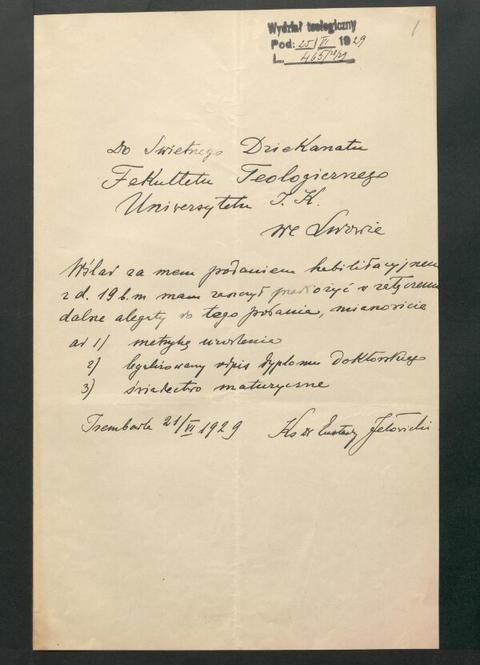 1
Wydział teologiczny
Pod: 25/VI 1929
L. 465/28/29
Do Świetnego Dziekanatu
Fakultetu Teologicznego
Uniwersytetu J. K.
we Lwowie
Wślad za mem podaniem habilitacyjnem
z d. 19 b.m mam zaszczyt przedłożyć w załączeniu
dalsze alegaty do tego podania, mianowicie
ad 1) metrykę urodzenia
2) legalizowany odpis dyplomu doktorskiego
3) świadectwo maturyczne
Trembowla 21/VI 1929 Ks dr Eustachy Jełowicki